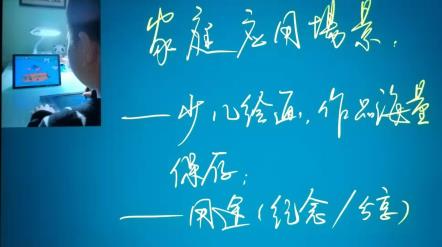 家庭应用場景:
——少儿绘画,作品海量
保存;
——用途(纪念/分享)